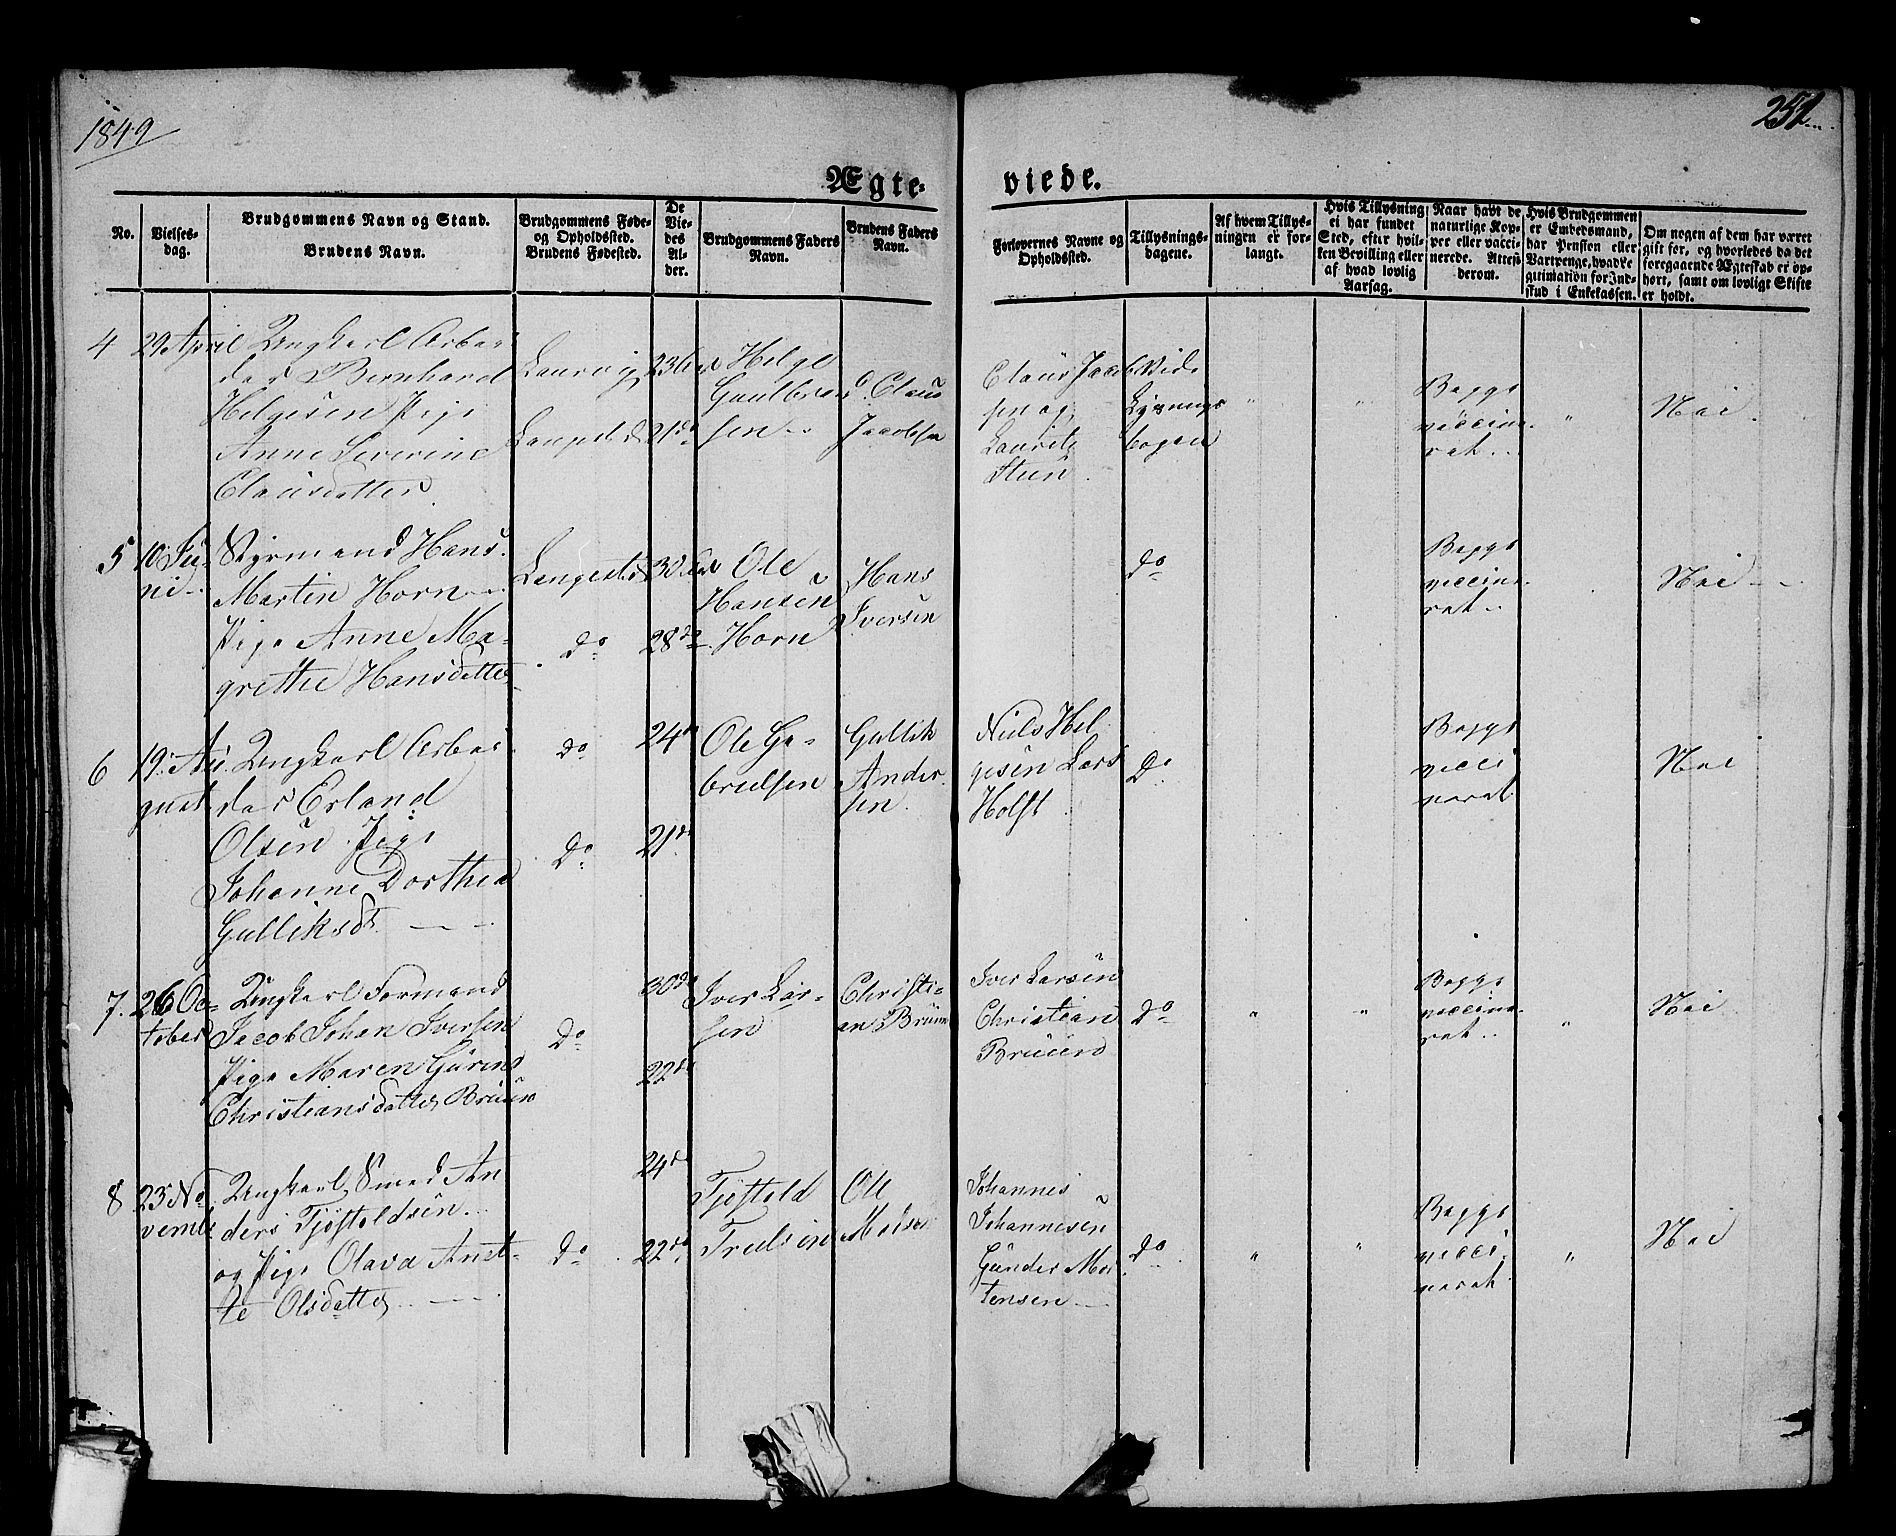 1849
251
Ægte-
viede.
No.
Vielses-
dag.
Brudgommens Navn og Stand.
Brudens Navn.
Brudgommens Føde-
og Opholdssted.
Brudens Fødested.
De
Vie-
des
Al-
der.
Brudgommens Faders
Navn.
Brudens Faders
Navn.
Forlovernes Navne og
Opholdssted.
Tillysnings-
dagene.
Af hvem Tillys-
ningen er for-
langt.
Hvis Tillysning
ei har fundet
Sted, efter hvil-
ken Bevilling eller
af hvad lovlig
Aarsag.
Naar havt de
naturlige Kop-
per eller vacci-
nerede. Attest
derom.
Hvis Brudgommen
er Embedsmand,
har Pension eller
Vartpenge, hvad Le-
gitimation for Ind-
skud i Enkekassen.
Om nogen af dem har været
gift før, og hvorledes da det
foregaaende Ægteskab er op-
hørt, samt om lovligt Skifte
er holdt.
4
29 April
Ungkarl Arbei
der Bernhard
Helgesen Pige
Anne Severine
Clausdatter
Laurvig
Langestd
23
21 do
Helge
Gulbrand
sen
Claus
Jacobsen
Claus Jacob
sen og
Lauritz
Steen
Vide
Lysnings
bogen
Begge
vaccine-
ret
Nei
5
10 Ju-
ni
Styrmand Hans
Martin Horn
Pige Anne Ma-
grethe Hansdatter
Langestd
do
30
28 do
Ole
Hansen
Horn
Hans
Iversen
do
Begge
vaccine-
ret
Nei
6
19 Au-
gust
Ungkarl Arbei
der Erland
Olsen Pige
Johanne Dorthea
Gulliksdt
do
do
24
21 do
Ole Ga-
brielsen
Gullik
Ander
sen
Niels Hel
gesen Lars
Holst
do
Begge
vacci
neret
Nei
7.
26 Oc-
tober
Ungkarl Formand
Jacob Johan Iversen
Pige Maren
Christiansdatter Bruun
do
30 do
22 do
Iver Lar-
sen
Christi-
an Bruun
Iver Larsen
Christian
Bruun
do
Begge
vaccine-
ret
Nei
8
23 No
vemb
Ungkarl Smed An
ders Tjøstoldsen
og Pige Olava Anet-
te Olsdatter
do
24 do
22 do
Tjøstold
Trulsen
Ole
Johannes
Johannesen
Gunder Mor
tensen
do
Begge
vacci
neret
Nei